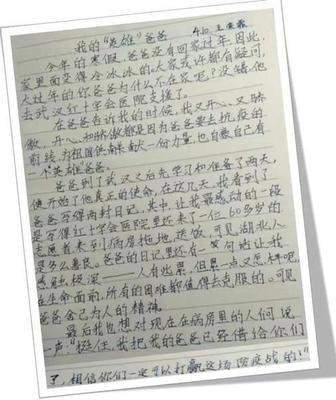 我的“英雄”爸爸
今年的寒假，爸爸没有回家过年，因此，
家里面变得冷冰冰的。大家或许都有疑问，
大过年的你爸爸为什么不在家呢？没错，他
去武汉红十字会医院支援了。
在爸爸告诉我的时候，我又开心，又骄
傲，开心和骄傲都是因为爸爸要去抗疫的
前线，为祖国供献一份力量，也自豪自己有
一个英雄爸爸。
爸爸到了武汉又后先学习和准备了两天，
便开始了他真正的使命，在这几天，我看到了
爸爸写得两封日记。其中，让我最感动的一段
是写得红十字会医院里还来了一位60多岁的
志愿者来到病房拖地，送饭，可见湖北人
是多么善良。爸爸的日记里还有一句话让我
感触极深——人有出累，但累一点又怎样呢，
在生命面前，所有的困难都值得去克服的。可见
爸爸舍己为人的精神。
最后我也想对现在在病房里的人们说
一声：“挺住，我把我的爸爸已经借给你们
了，相信你们一定可以打赢这场防疫战的！”